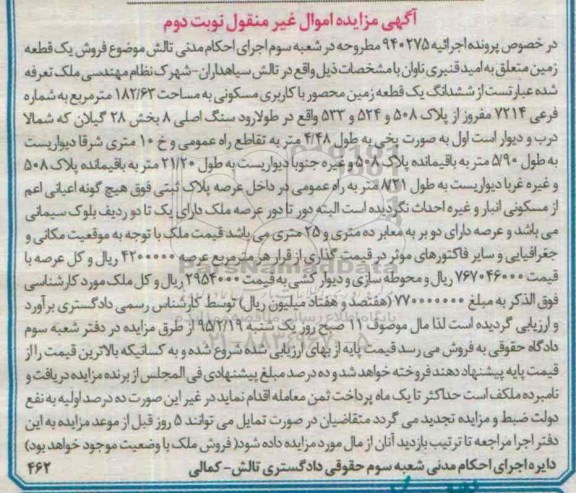 آگهی مزایده اموال غیر منقول نوبت دوم
در خصوص پرونده اجرائیه ۹۴۰۲۷۵ مطروحه در شعبه سوم اجرای احکام مدنی تالش موضوع فروش یک قطعه
زمین متعلق به امید قنبری ناوان با مشخصات ذیل واقع در تالش سیاهداران- شهرک نظام مهندسی ملک تعرفه
شده عبارتست از ششدانگ یک قطعه زمین محصور با کاربری مسکونی به مساحت ۱۸۲/۶۳ مترمربع به شماره
فرعی ۷۲۱۴ مفروز از پلاک ۵۰۸ و ۵۲۴ و ۵۳۳ واقع در طولارود سنگ اصلی ۸ بخش ۲۸ گیلان که شمالا
درب و دیوار است اول به صورت پخی به طول ۴/۴۸ متر به تقاطع راه عمومی و خ ۱۰ متری شرقا دیواریست
به طول ۵/۹۰ متر به باقیمانده پلاک ۵۰۸ و غیره جنوبا دیواریست به طول ۲۱/۲۰ متر به باقیمانده پلاک ۵۰۸
و غیره غربا دیواریست به طول ۸/۲۱ متر به راه عمومی در داخل عرصه پلاک ثبتی فوق هیچ گونه اعیانی اعم
از مسکونی انبار و غیره احداث نگردیده است البته دور تا دور عرصه ملک دارای یک تا دو ردیف بلوک سیمانی
می باشد و عرصه دارای دو بر به معابر ده متری و ۲۵ متری می باشد قیمت ملک با توجه به موقعیت مکانی و
جغرافیایی و سایر فاکتورهای موثر در قیمت گذاری از قرار هر مترمربع عرصه ۴۲۰۰۰۰۰ ریال و کل عرصه با
قیمت ۷۶۷۰۴۶۰۰۰ ریال و محوطه سازی و دیوار کشی به قیمت ۲۹۵۴۰۰۰ ریال و کل ملک مورد کارشناسی
فوق الذکر به مبلغ ۷۷۰۰۰۰۰۰۰ (هفتصد و هفتاد میلیون ریال) توسط کارشناس رسمی دادگستری برآورد
و ارزیابی گردیده است لذا مال موصوف ۱۱ صبح روز یک شنبه ۹۵/۲/۱۹ از طرق مزایده در دفتر شعبه سوم
دادگاه حقوقی به فروش می رسد قیمت پایه از بهای ارزیابی شده شروع شده و به کسانیکه بالاترین قیمت را از
قیمت پایه پیشنهاد دهند فروخته خواهد شد و ده درصد مبلغ پیشنهادی فی المجلس از برنده مزایده دریافت و
نامبرده ملکف است حداکثر تا یک ماه پرداخت ثمن معامله اقدام نماید در غیر این صورت ده درصد اولیه به نفع
دولت ضبط و مزایده تجدید می گردد متقاضیان در صورت تمایل می توانند ۵ روز قبل از موعد مزایده به این
دفتر اجرا مراجعه تا ترتیب بازدید آنان از مال مورد مزایده داده شود( فروش ملک با وضعیت موجود خواهد بود)
دایره اجرای احکام مدنی شعبه سوم حقوقی دادگستری تالش- کمالی ۴۶۲
ParsNamadData